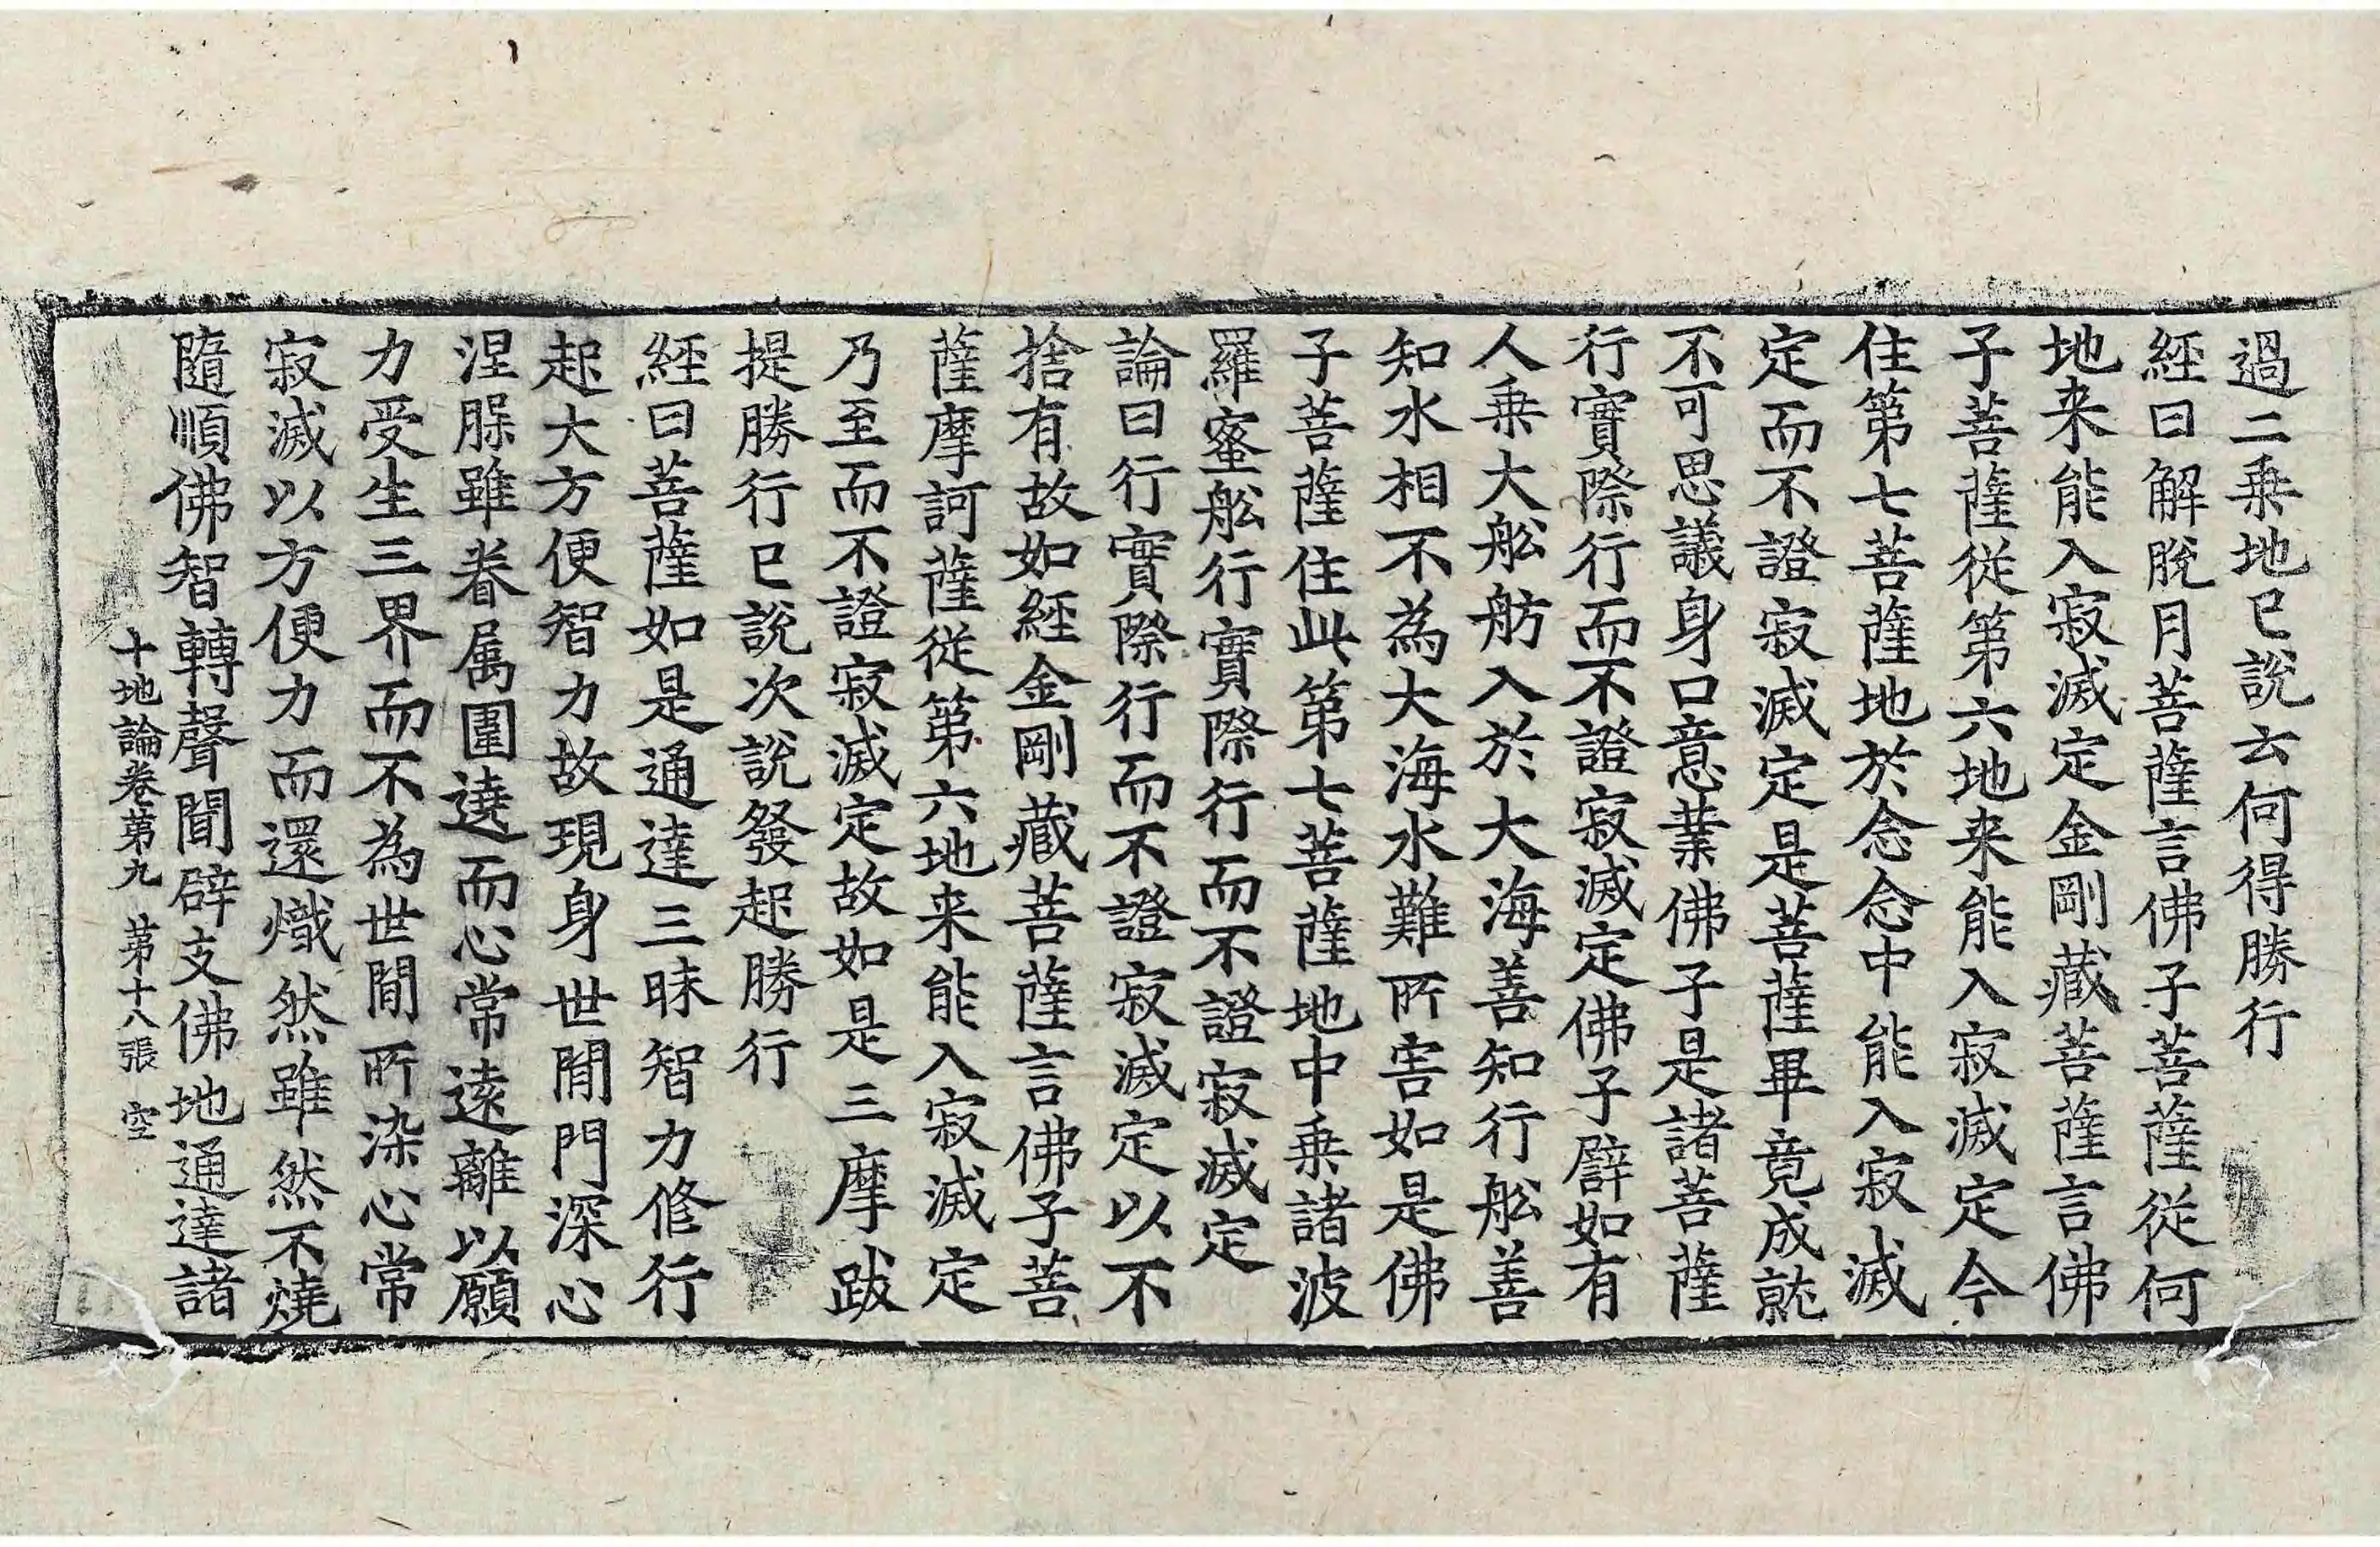 過二乗地已說云何得勝行
經曰解脫月菩薩言佛子菩薩從何
地来能入寂滅定金剛藏菩薩言佛
子菩薩從第六地来能入寂滅定今
住第七菩薩地於念念中能入寂滅
定而不證寂滅定是菩薩畢竟成就
不可思議身口意業佛子是諸菩薩
行實際行而不證寂滅定佛子譬如有
人乗大舩舫入於大海善知行舩善
知水相不為大海水難所害如是佛
子菩薩住此第七菩薩地中乗諸波
羅蜜舩行實際行而不證寂滅定
論曰行實際行而不證寂滅定以不
捨有故如經金剛藏菩薩言佛子菩
薩摩訶薩從第六地来能入寂滅定
乃至而不證寂滅定故如是三摩跋
提勝行已說次說發起勝行
經曰菩薩如是通達三昧智力修行
起大方便智力故現身世間門深心
涅槃雖眷属圍遶而心常遠離以願
力受生三界而不為世間所染心常
寂滅以方便力而還熾然雖然不燒
隨順佛智轉聲聞辟支佛地通達諸
十地論卷第九 第十八張 空